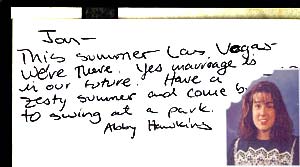 Jon-
This summer Las Vegas
We're There. Yes marriage is
in our future. Have a
zesty summer and come b
to swing at a park.
Abby Hawkins